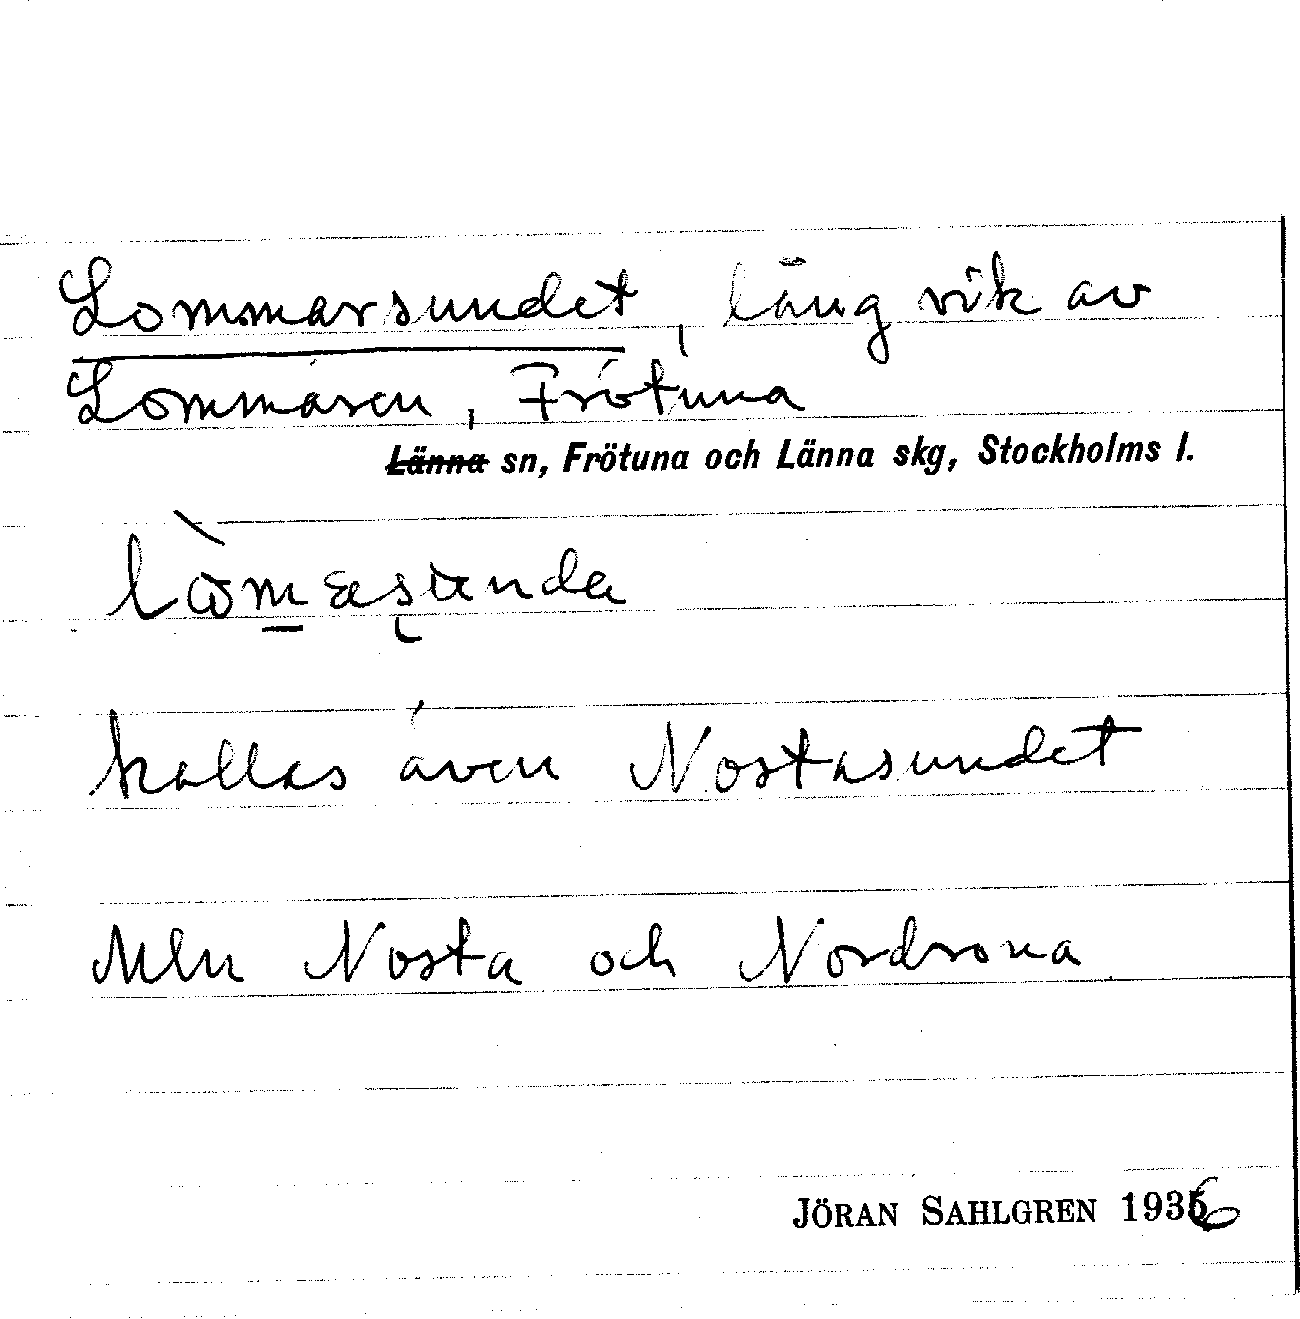 Lommarsundet, lång vik av
Lommaren, Frötuna
~~Länna~~ sn, Frötuna och Länna skg, Stockholms l.
kallas även Nostasundet
Mln Nosta och Nordrona
JÖRAN SAHLGREN 1936